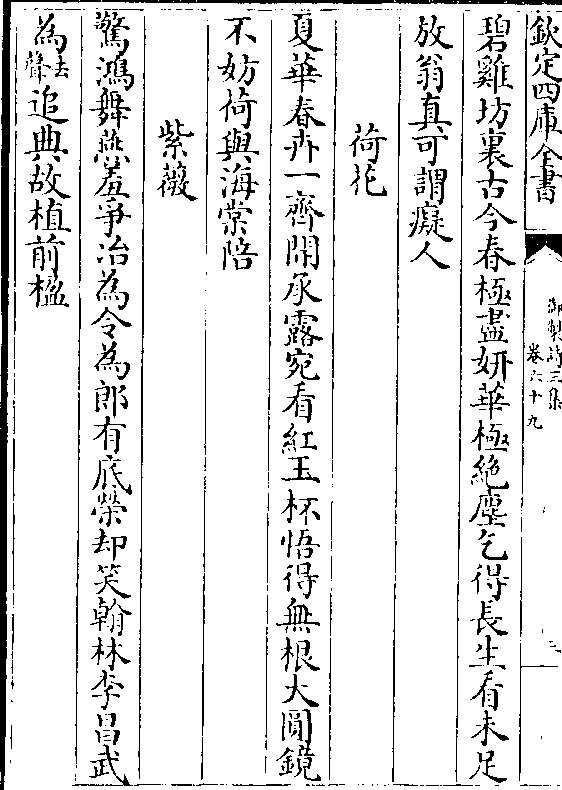 欽定四庫全書
御製詩三集
卷六十九
三
碧雞坊裏古今春極盡妍華極絶塵乞得長生看未足
放翁真可謂癡人
荷花
夏華春卉一齊開承露宛看紅玉杯悟得無根大圓鏡
不妨荷與海棠陪
紫薇
驚鴻舞燕羞爭冶為令為郎有底榮却笑翰林李昌武
為去聲追典故植前楹